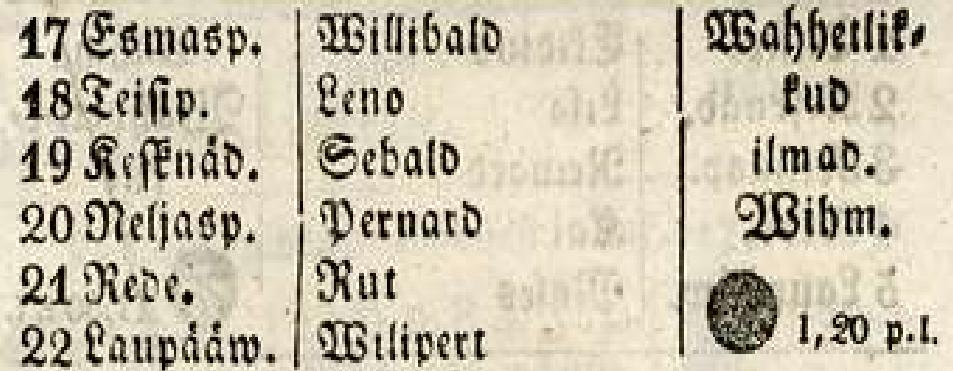 17 Esmasp. Willibald Wahhetlik-
18 Teisip. Leno kud
19 Kesknäd. Sebald ilmad.
20 Neljasp. Pernard Wihm.
21 Rede. Rut
22 Laupääw. Wilipert 1,20 p.l.